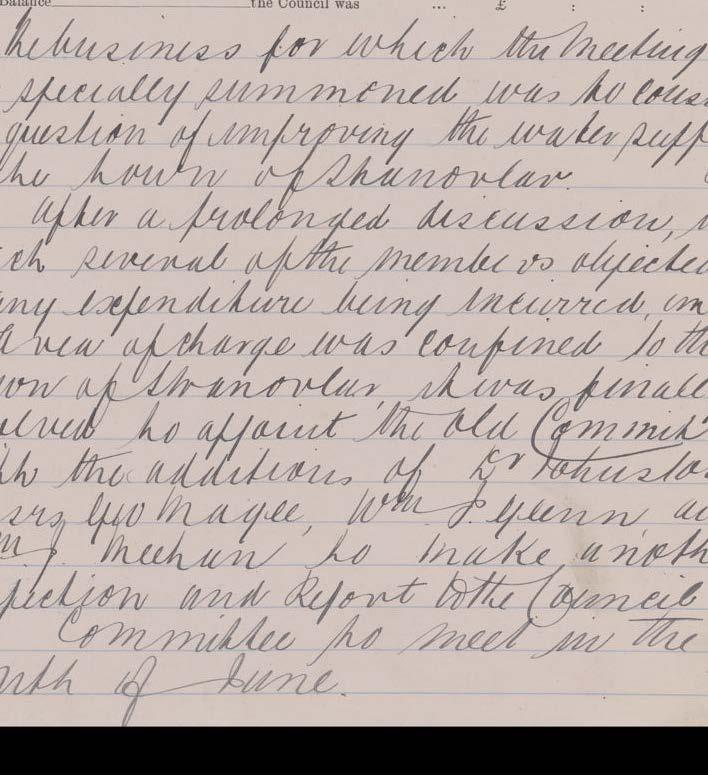 Balance the Council was ... £ : :
The business for which the Meeting
specially summoned was to cons
question of improving the water supp
the town of Stranorlar.
After a prolonged discussion,
ich several of the members objected
any expenditure being incurred, un
area of charge was confined to th
own of Stranorlar, it was finall
olved to appoint the old Committ
ith the additions of Dr Johnston
srs Geo Magee, Wm J. Glenn an
J. Meehan to make anoth
pection and Report to the Council
Committee to meet in the
onth of June.